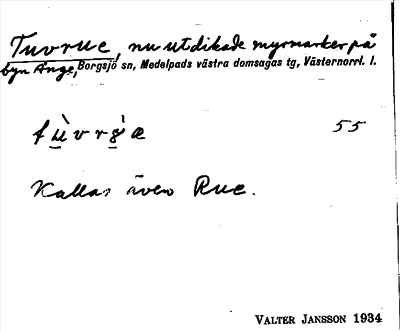 Tuvrue, nu utdikade myrmarker på
byn Ånge, Borgsjö sn, Medelpads västra domsagas tg, Västernorrl. l.
55
Kallas även Rue.
VALTER JANSSON 1934